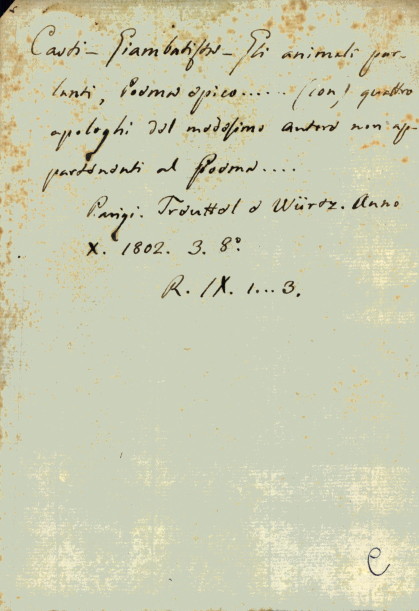 Casti - Giambatista - Gli animali par-
lanti, Poema epico..... (con) quattro
apologhi del medesimo autore non ap-
partenenti al Poema....
Parigi. Treuttel e Würtz. Anno
X. 1802. 3. 8°.
R. IX. 1...3.
C